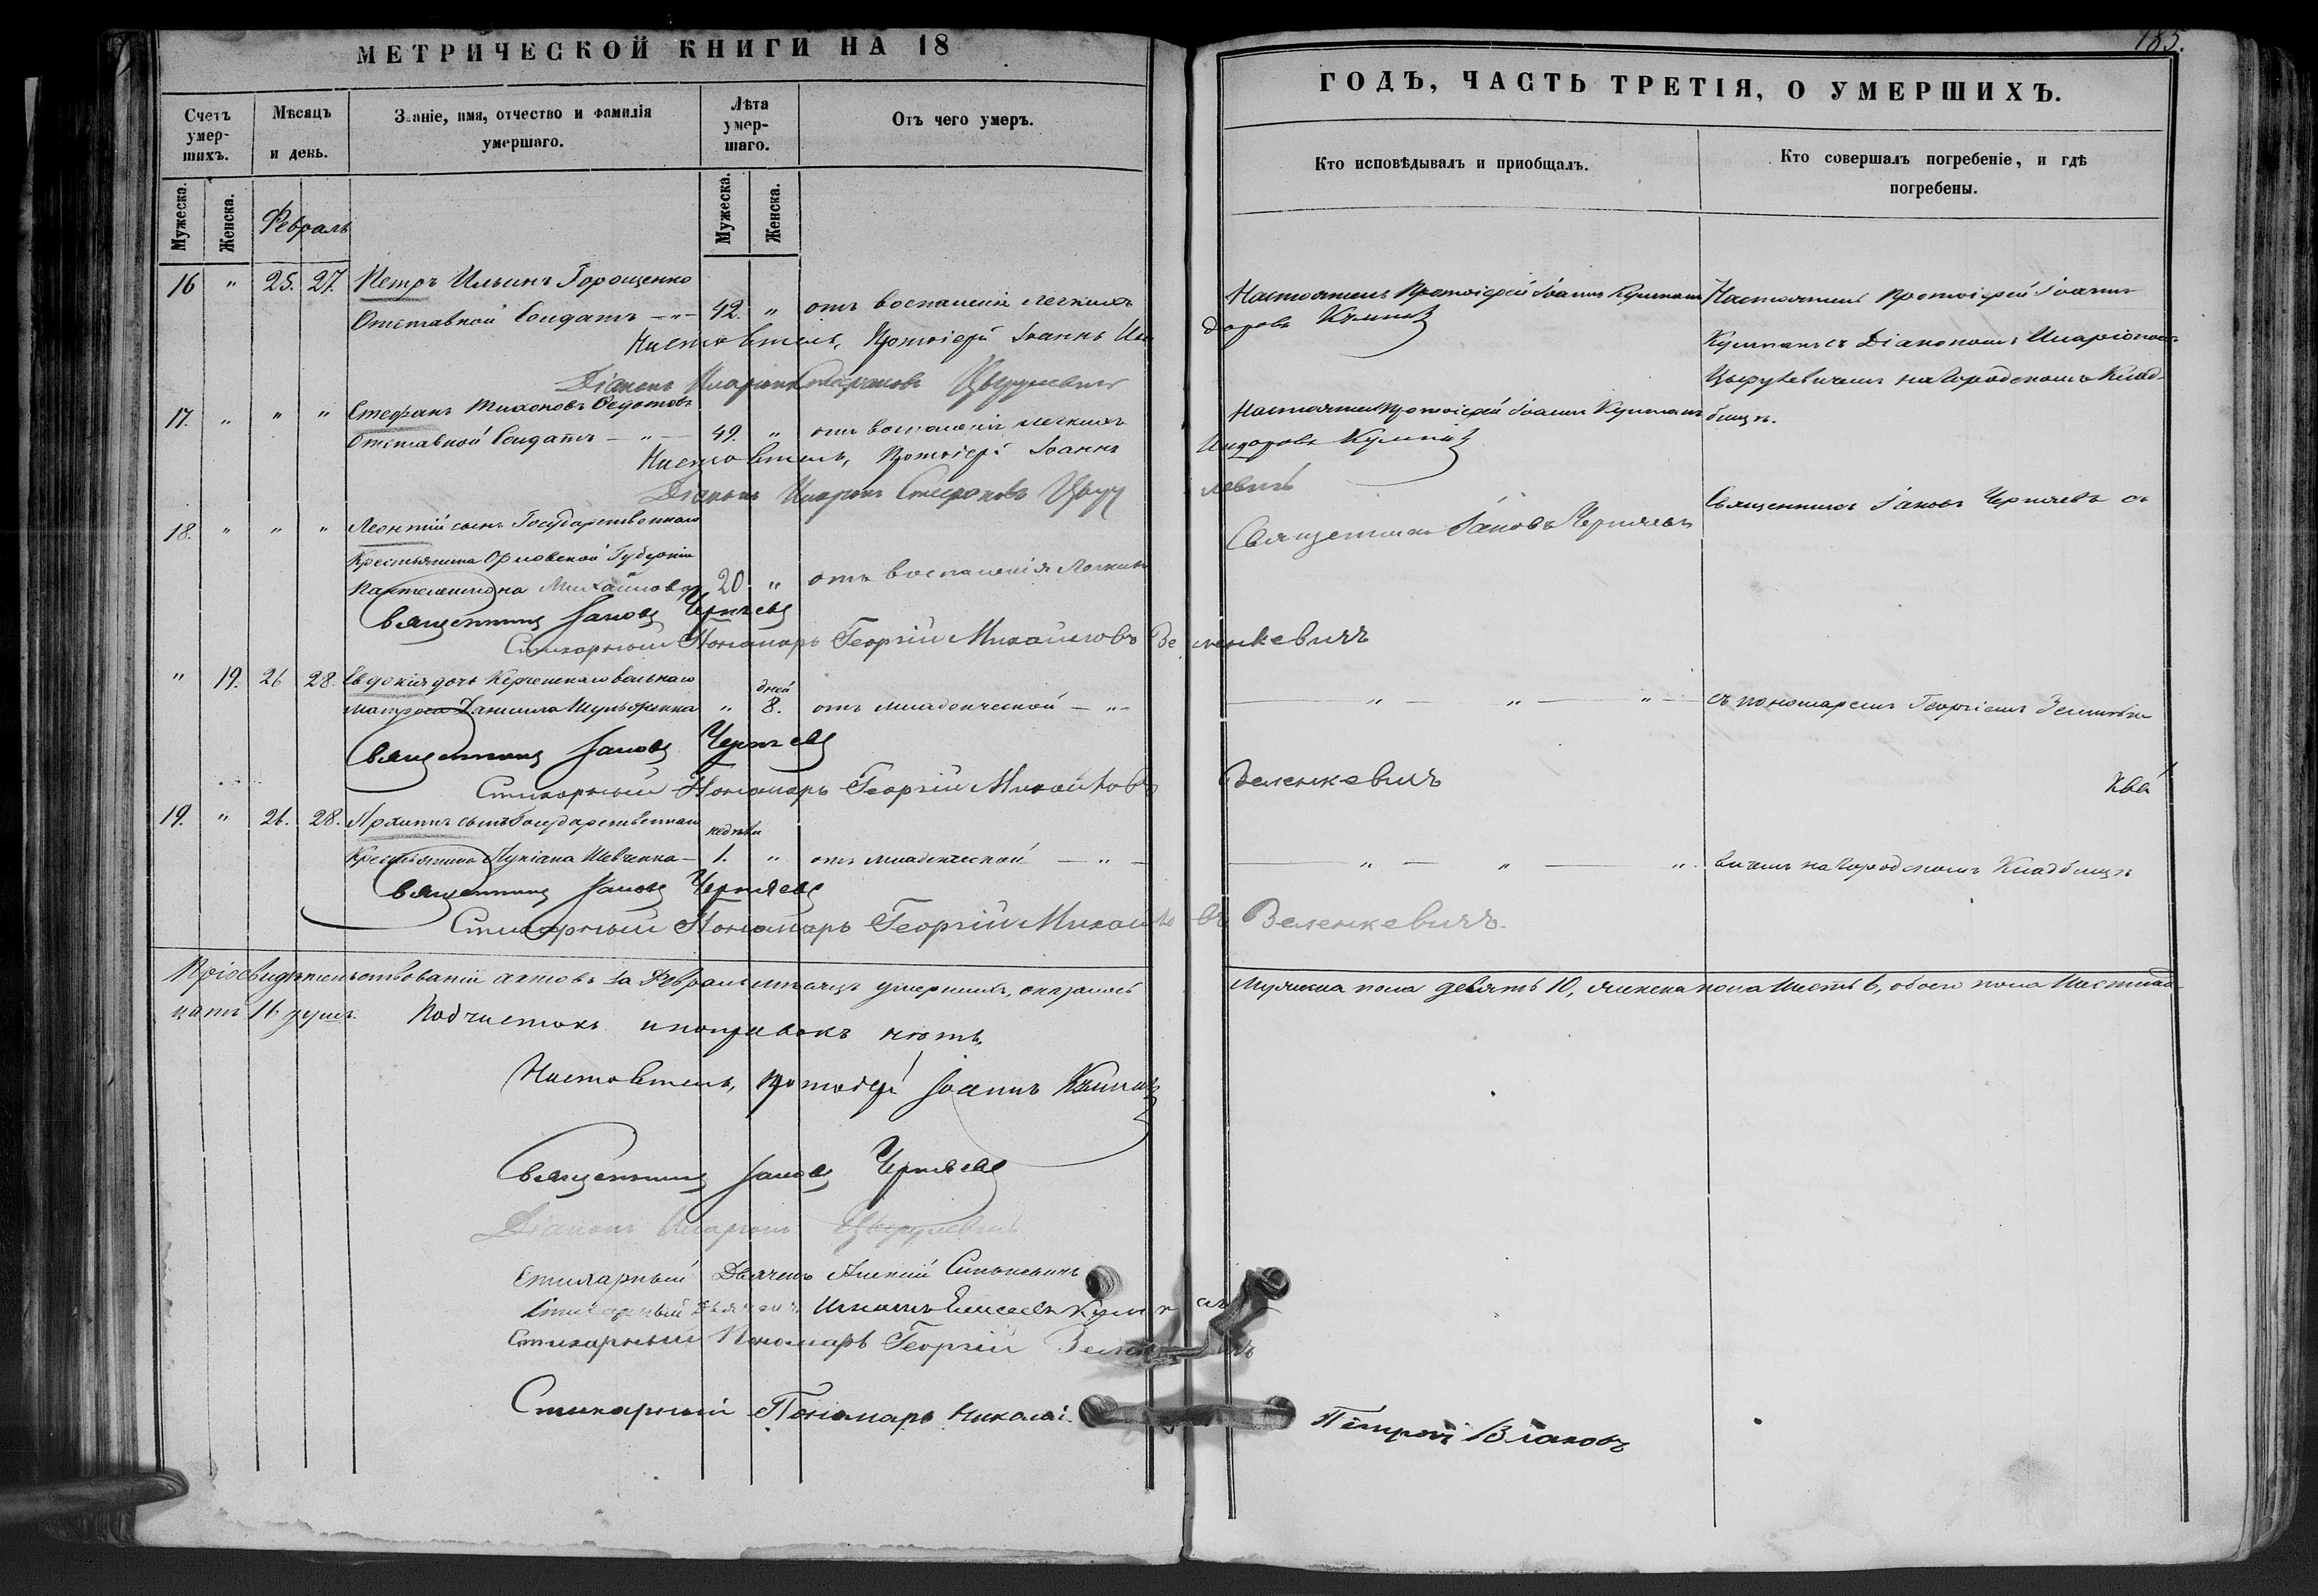 МЕТРИЧЕСКОЙ КНИГИ НА 18
Счетъ умер-шихъ.
Мѣсяцъ и день.
Званіе, имя, отчество и фамилія умершаго.
Лѣта умер-шаго.
Отъ чего умеръ.
Мужеска. Женска. Февраль Мужеска. Женска.
16 " 25. 27. Петръ Ильинъ Горощенко
Отставной Солдатъ — " — 42. " отъ воспаленія легкихъ
Настоятель, Протоіерей Іоаннъ
Діаконъ Иларіонъ Стефановъ
17. " " " Стефанъ Тихоновъ Федотовъ
Отставной Солдатъ — " — 49. " отъ воспаленія легкихъ
Настоятель, Протоіерей Іоаннъ
Діаконъ Иларіонъ Стефановъ
18. " " " Леонтій сынъ Государственнаго
Крестьянина Орловской Губерніи
Пантелеимона Михайлова 20. " отъ воспаленія Легкихъ
Священникъ Іаковъ Черняевъ
Стихарный Пономарь Георгій Михайловъ Веленкевичъ
" 19. 26 28. Евдокія дочь Керченскаго вольнаго
дней
матроса Даниила " 8. отъ младенческой — " —
Священникъ Іаковъ Черняевъ
Стихарный Пономарь Георгій Михайловъ
19. " 26. 28. Архипъ сынъ Государственнаго недѣли
Крестьянина Лукіана Шевченка — 1. " отъ младенческой — " —
Священникъ Іаковъ Черняевъ
Стихарный Пономарь Георгій Михайловъ Веленкевичъ.
По освидѣтельствованіи актовъ за Февраль мѣсяцъ умершихъ, оказалось
цать 16 душъ. Подчистокъ и поправокъ нѣтъ.
Настоятель, Протоіерей Іоаннъ
Священникъ Іаковъ Черняевъ
Діаконъ Иларіонъ
Стихарный Дьячекъ Алексій
Стихарный Дьячекъ Елисеевъ
Стихарный Пономарь Георгій
Стихарный Пономарь Николай
185.
ГОДЪ, ЧАСТЬ ТРЕТІЯ, О УМЕРШИХЪ.
Кто исповѣдывалъ и пріобщалъ.
Кто совершалъ погребеніе, и гдѣ погребены.
Настоятель Протоіерей Іоаннъ Настоятель Протоіерей Іоаннъ
съ Діакономъ Иларіономъ
на Городскомъ Клад-
Настоятель Протоіерей Іоаннъ бищѣ.
Священникъ Іаковъ Черняевъ съ
Священникъ Іаковъ Черняевъ
— " — " — " — съ пономаремъ Георгіемъ
Веленкевичъ
— " — " — " вичемъ на Городскомъ Кладбищѣ
Мужеска пола девять 10, женска пола шесть 6, обоего пола Шестнад-
Влаховъ